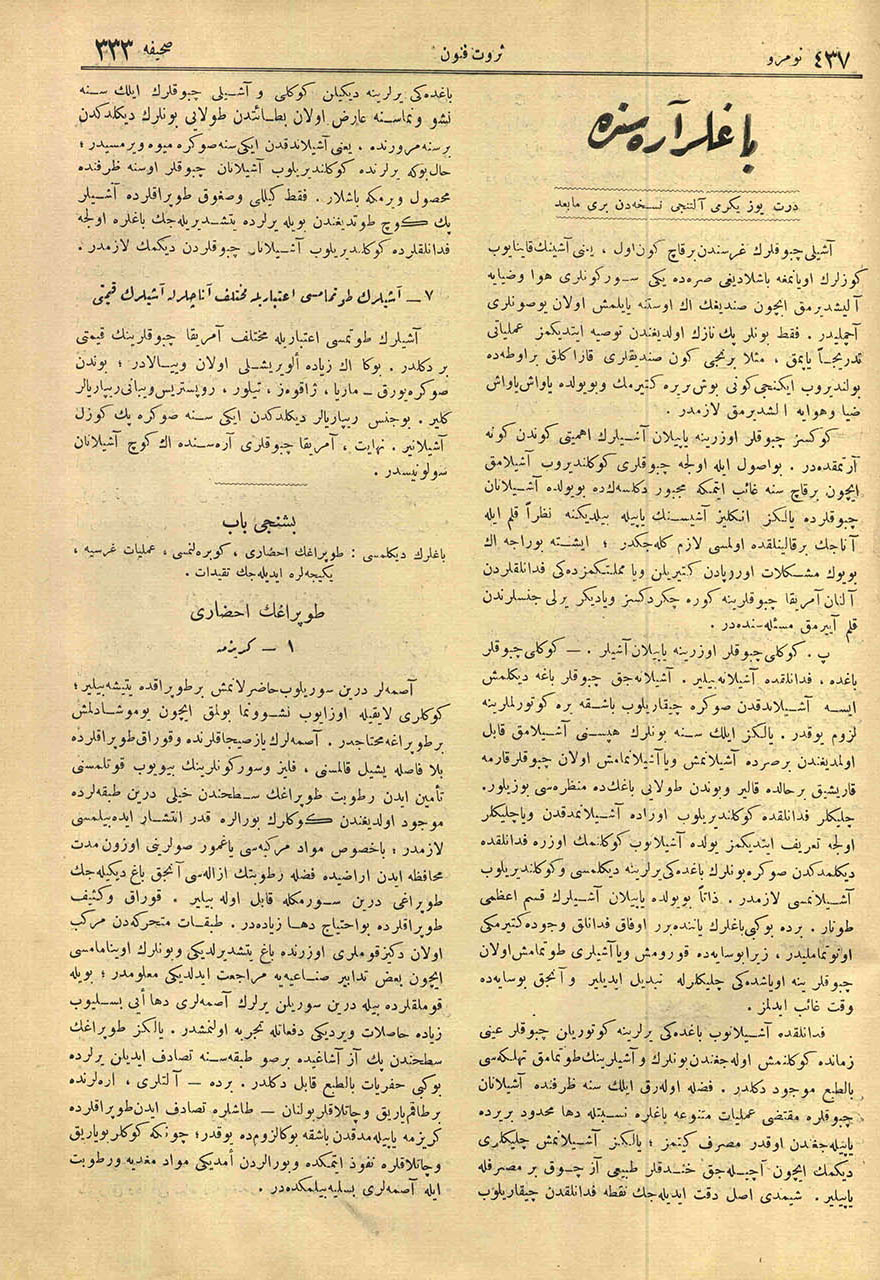 نومرو ٤٣٧
ثروت فنون
صحيفه ٣٣٣
باغلر آره‌سنده
درت يوز يكرمى آلتنجى نسخه‌دن برى مابعد
آشيلى چبوقلرك غرسندن برقاچ كون اول ، يعنى آشينك قاينايوب
كوزلرك اويانمغه باشلاديغى صره‌ده يكى سوركونلرى هوا وضيايه
آليشديرمق ايچون صنديغك اك اوستنه يايلمش اولان يوصونلرى
آچمليدر . فقط بونلر پك نازك اولديغندن توصيه ايتديكمز عملياتى
تدريجاً ياپمق ، مثلا برنجى كون صنديقلرى قاراكلق براوطه‌ده
بولنديروب ايكنجى كونى بوش بريره كتيرمك وبويولده ياواش ياواش
ضيا وهوايه الشديرمق لازمدر .
كوكسز چبوقلر اوزرينه ياپيلان آشيلرك اهميتى كوندن كونه
آرتمقده‌در . بواصول ايله اولجه چبوقلرى كوكلنديروب آشيلامق
ايچون برقاچ سنه غائب ايتمكه مجبور دكلسه‌ك ده بويولده آشيلانان
چبوقلرده يالكز انكليز آشيسنك ياپيله بيلديكنه نظراً قلم ايله
آناجك برقالينلقده اولمسى لازم كله‌جكدر ؛ ايشته بوراجه اك
بويوك مشكلات اوروپادن كتيريلن ويا مملكتمزده‌كى فدانلقلردن
آلنان آمريقا چبوقلرينه كوره چكردكسز وياديكر يرلى جنسلرندن
قلم آييرمق مسئله‌سنده‌در .
پ . كوكلى چبوقلر اوزرينه ياپيلان آشيلر . — كوكلى چبوقلر
باغده ، فدانلقده آشيلانه‌بيلير . آشيلانه‌جق چبوقلر باغه ديكلمش
ايسه آشيلاندقدن صوكره چيقاريلوب باشقه يره كوتورملرينه
لزوم يوقدر . يالكز ايلك سنه بونلرك هپسنى آشيلامق قابل
اولمديغندن برصره‌ده آشيلانمش ويا آشيلانمامش اولان چبوقلر قارمه
قاريشيق برحالده قالير وبوندن طولايى باغك ده منظره‌سى بوزيلور.
چليكلر فدانلقده كوكلنديريلوب اوراده آشيلاندقدن وياچليكلر
اولجه تعريف ايتديكمز يولده آشيلانوب كوكلنمك اوزره فدانلقده
ديكلمدكدن صوكره بونلرك باغده‌كى يرلرينه ديكلمسى وكوكلنديريلوب
آشيلانمسى لازمدر . ذاتاً بويولده ياپيلان آشيلرك قسم اعظمى
طوتار . برده بوكبى باغلرك ياننده برر اوفاق فدانلق وجوده كتيرمكى
اونوتماملیدر ، زيرا بوسايه‌ده قورومش ويا آشيلرى طوتمامش اولان
چبوقلر ينه اوياشده‌كى چليكلرله تبديل ايديلير و آنجق بوسايه‌ده
وقت غائب ايدلمز .
فدانلقده آشيلانوب باغده‌كى يرلرينه كوتوريلن چبوقلر عينى
زمانده كوكلنمش اوله‌جغندن بونلرك و آشيلرينك طوتمامق تهلكه‌سى
بالطبع موجود دكلدر . فضله اوله‌رق ايلك سنه ظرفنده آشيلانان
چبوقلره مقتضى عمليات متنوعه باغلره نسبتله دها محدود بريرده
ياپيله‌جغندن اوقدر مصرف كيتمز ؛ يالكز آشيلانمش چليكلرى
ديكمك ايچون آچيله‌جق خندقلر طبيعى آز چوق بر مصرفله
ياپيلير . شيمدى اصل دقت ايديله‌جك نقطه فدانلقدن چيقاريلوب
باغده‌كى يرلرينه ديكيلن كوكلى و آشيلى چبوقلرك ايلك سنه
نشو ونماسنه عارض اولان بطائتدن طولايى بونلرك ديكلدكدن
برسنه مرورنده ، يعنى آشيلاندقدن ايكى سنه صوكره ميوه ويرمسيدر ؛
حال بوكه يرلرنده كوكلنديريلوب آشيلانان چبوقلر اوسنه ظرفنده
محصول ويرمكه باشلار . فقط كيللى وصغوق طوپراقلرده آشيلر
پك كوچ طوتديغندن بويله يرلرده يتشديريله‌جك باغلره اولجه
فدانلقلرده كوكلنديريلوب آشيلانان چبوقلردن ديكمك لازمدر .
٧ — آشيلرك طوتمامسى اعتباريله مختلف آناجلرله آشيلرك قيمتى
آشيلرك طوتمسى اعتباريله مختلف آمريقا چبوقلرينك قيمتى
بر دكلدر . بوكا اك زياده ألويريشلى اولان وييالادر ؛ بوندن
صوكره يورق — ماريا ، ژاقه‌ز ، تيلور ، روپستريس ويبانى ريپاريالر
كلير . بوجنس ريپاريالر ديكلدكدن ايكى سنه صوكره پك كوزل
آشيلانير . نهايت ، آمريقا چبوقلرى آره‌سنده اك كوچ آشيلانان
سولونيسدر .
بشنجى باب
باغلرك ديكلمسى : طوپراغك احضارى ، كوبره‌لنمسى ، عمليات غرسيه ،
يكيجه‌لره ايديله‌جك تقيدات .
طوپراغك احضارى
١ — كريزمه
آصمه‌لر درين سوريلوب حاضرلانمش برطوپراقده يتيشه‌بيلير ؛
كوكلرى لايقيله اوزايوب نشوونما بولمق ايچون يوموشادلمش
برطوپراغه محتاجدر . آصمه‌لرك يازصيجاقلرنده وقوراق طوپراقلرده
بلا فاصله يشيل قالمسنى ، فليز وسوركونلرينك بيويوب قوتلمسنى
تأمين ايدن رطوبت طوپراغك سطحندن خيلى درين طبقه‌لرده
موجود اولديغندن كوكلرك بورالره قدر انتشار ايده‌بيلمسى
لازمدر ؛ باخصوص مواد مركبه‌سى ياغمور صولرينى اوزون مدت
محافظه ايدن اراضيده فضله رطوبتك ازاله‌سى آنجق باغ ديكيله‌جك
طوپراغى درين سورمكله قابل اوله بيلير . قوراق وكثيف
طوپراقلرده بواحتياج دها زياده‌در . طبقات متحركه‌دن مركب
اولان دكيزقوملرى اوزرنده باغ يتشديرلديكى وبونلرك اوينامامسى
ايچون بعض تدابير صناعيه‌يه مراجعت ايدلديكى معلومدر ؛ بويله
قوملقلرده بيله درين سوريلن يرلرك آصمه‌لرى دها أيى بسليوب
زياده حاصلات ويرديكى دفعاتله تجربه اولنمشدر . يالكز طوپراغك
سطحندن پك آز آشاغيده برصو طبقه‌سنه تصادف ايديلن يرلرده
بوكبى حفريات بالطبع قابل دكلدر . برده — آلتلرى ، اره‌لرنده
برطاقم ياريق وچاتلاقلر بولنان — طاشلره تصادف ايدن طوپراقلرده
كريزمه ياپيلمدقدن باشقه بوكا لزوم ده يوقدر ؛ چونكه كوكلر بوياريق
وچاتلاقلره نفوذ ايتمكده وبورالردن أمديكى مواد مغديه ورطوبت
ايله آصمه‌لرى بسليه‌بيلمكده‌در .